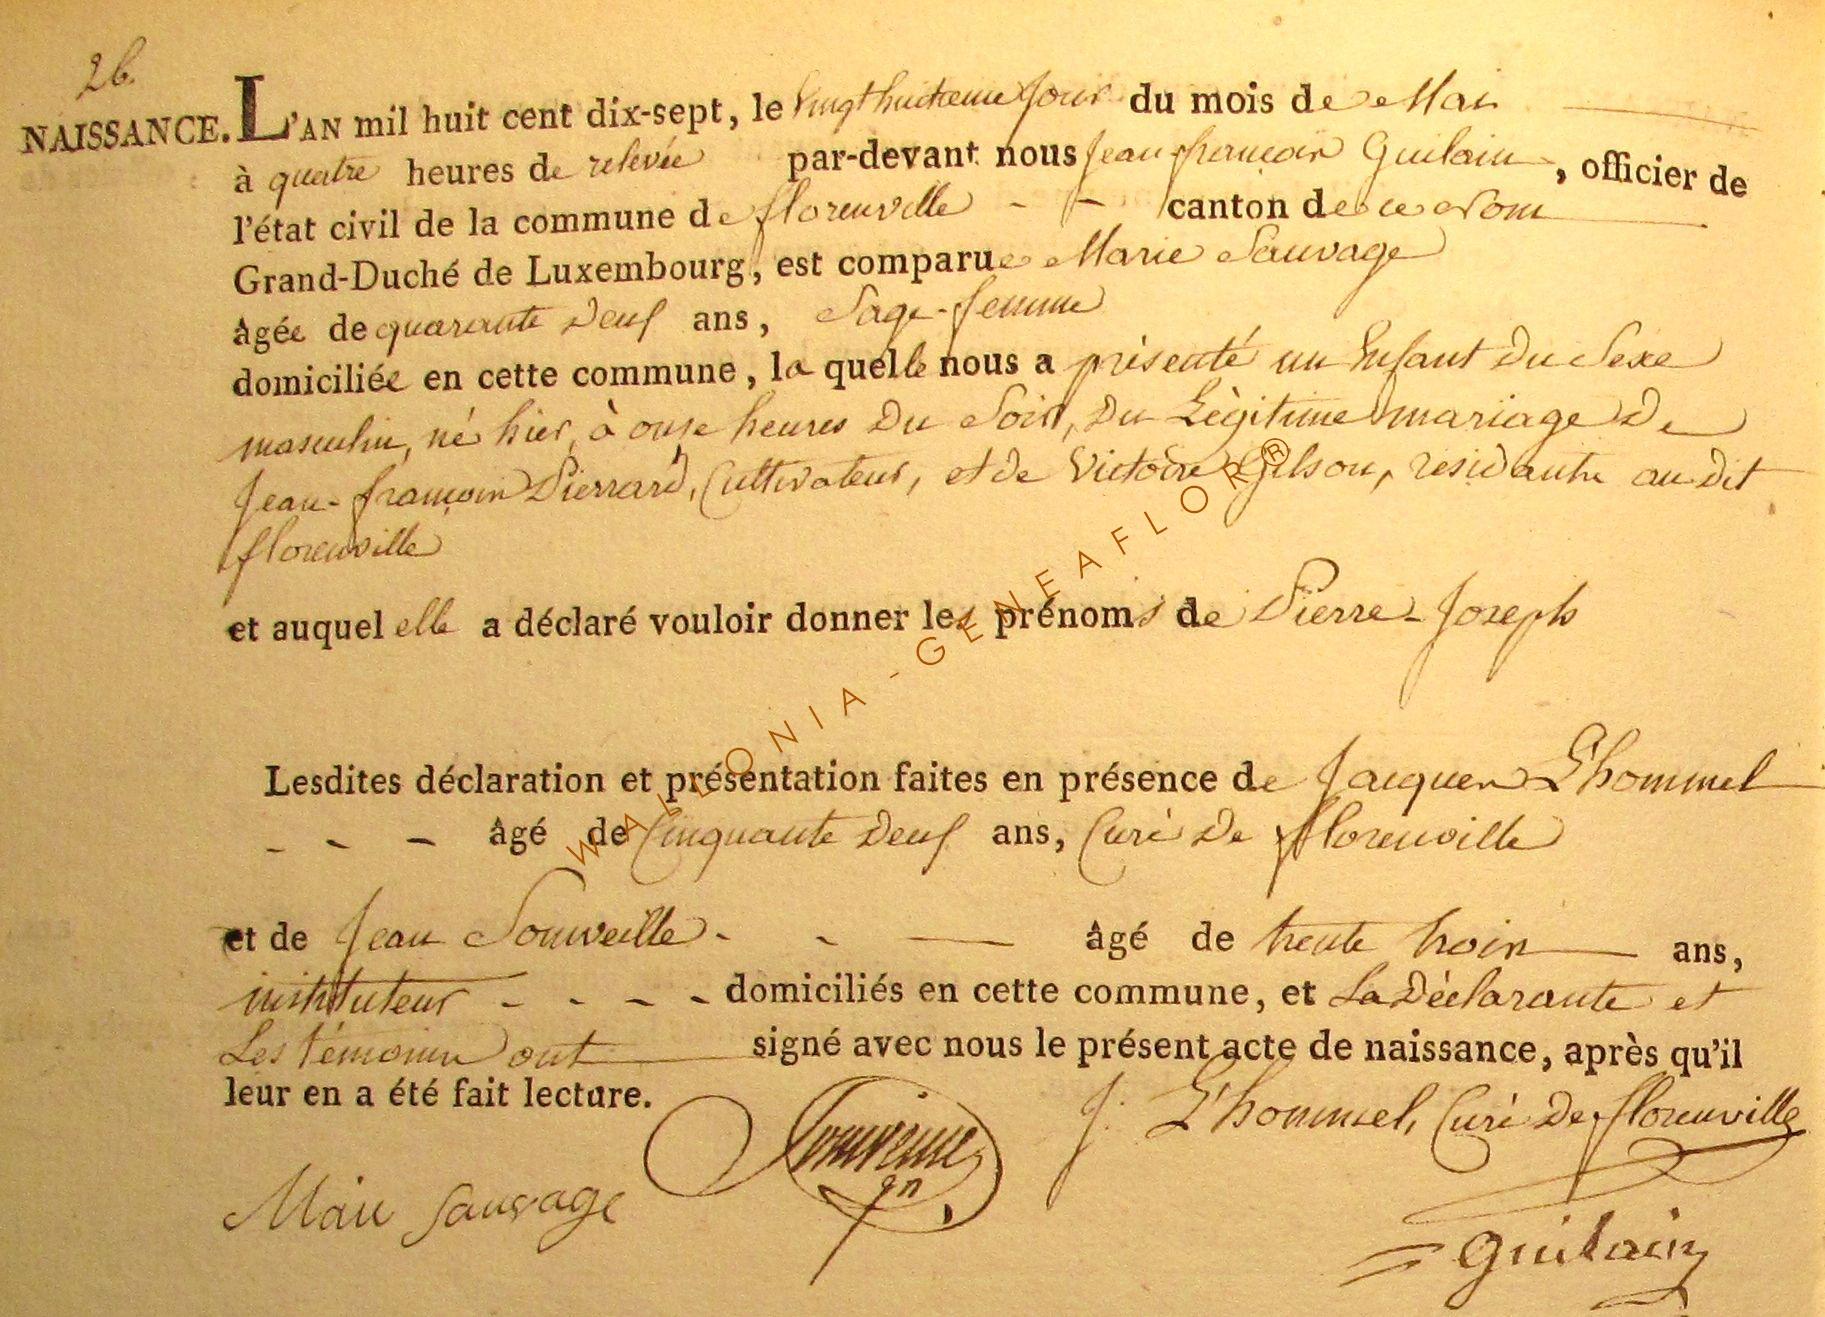 26.
NAISSANCE. L'AN mil huit cent dix-sept, le vingt huitieme jour du mois de Mai
à quatre heures de relevée par-devant nous Jean françois Guilain, officier de
l'état civil de la commune de florenville - - canton de ce nom
Grand-Duché de Luxembourg, est comparue Marie Sauvage
âgée de quarante deuf ans, Sage-femme
domiciliée en cette commune, la quelle nous a présenté un Enfant du Sexe
masculin, né hier, à onze heures du Soir, du Légitime mariage de
Jean-françois Pierrard, Cultivateur, et de Victoire Gilson, residants au dit
florenville
et auquel elle a déclaré vouloir donner les prénoms de Pierre-Joseph
Lesdites déclaration et présentation faites en présence de Jacques L'hommel
- - - âgé de Cinquante deuf ans, Curé de florenville
et de Jean Souveille - - — âgé de trente trois ans,
instituteur - - - - domiciliés en cette commune, et La Déclarante et
Les témoins ont signé avec nous le présent acte de naissance, après qu'il
leur en a été fait lecture.
J. L'hommel, Curé de florenville
Marie Sauvage
Guilain
WALLONIA-GENEAFLOR®